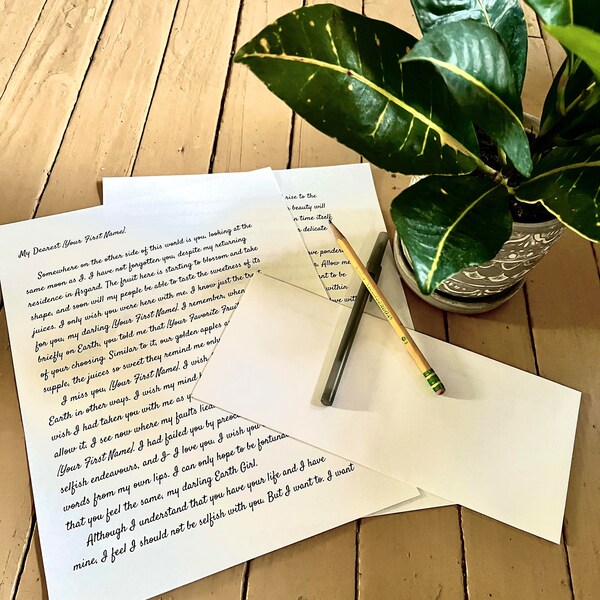 My Dearest [Your First Name],
Somewhere on the other side of this world is you, looking at the
same moon as I. I have not forgotten you, despite my returning
residence in Asgard. The fruit here is starting to blossom and take
shape, and soon will my people be able to taste the sweetness of its
juices. I only wish you were here with me. I know just the
for you, my darling [Your First Name]. I remember, when
briefly on Earth, you told me that [Your Favorite
of your choosing. Similar to it, our golden apples
supple, the juices so sweet they remind me only
I miss you, [Your First Name]. I wish
Earth in other ways. I wish my mind
wish I had taken you with me as
allow it. I see now where my faults
[Your First Name]. I had failed you by
selfish endeavours, and I- I love you. I wish you
words from my own lips. I can only hope to be
that you feel the same, my darling Earth Girl.
Although I understand that you have your life and I have
mine, I feel I should not be selfish with you. But I want to. I want
rise to the
beauty will
time itself
delicate
Allow me
to be
within
with